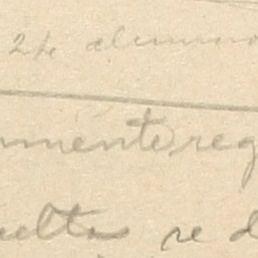 24 alumno
mente reg
uelta se d